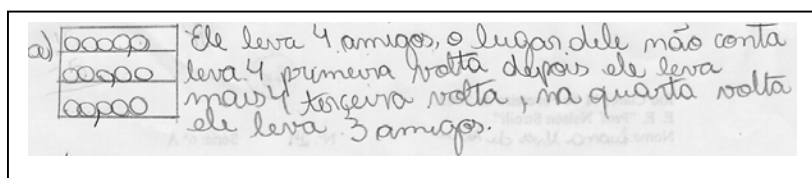 a) Ele leva 4 amigos, o lugar dele não conta
leva 4 primeira volta depois ele leva
mais 4 terceira volta, na quarta volta
ele leva 3 amigos.
E. E. "Prof. Nelson
Nome
Série: 6ª A